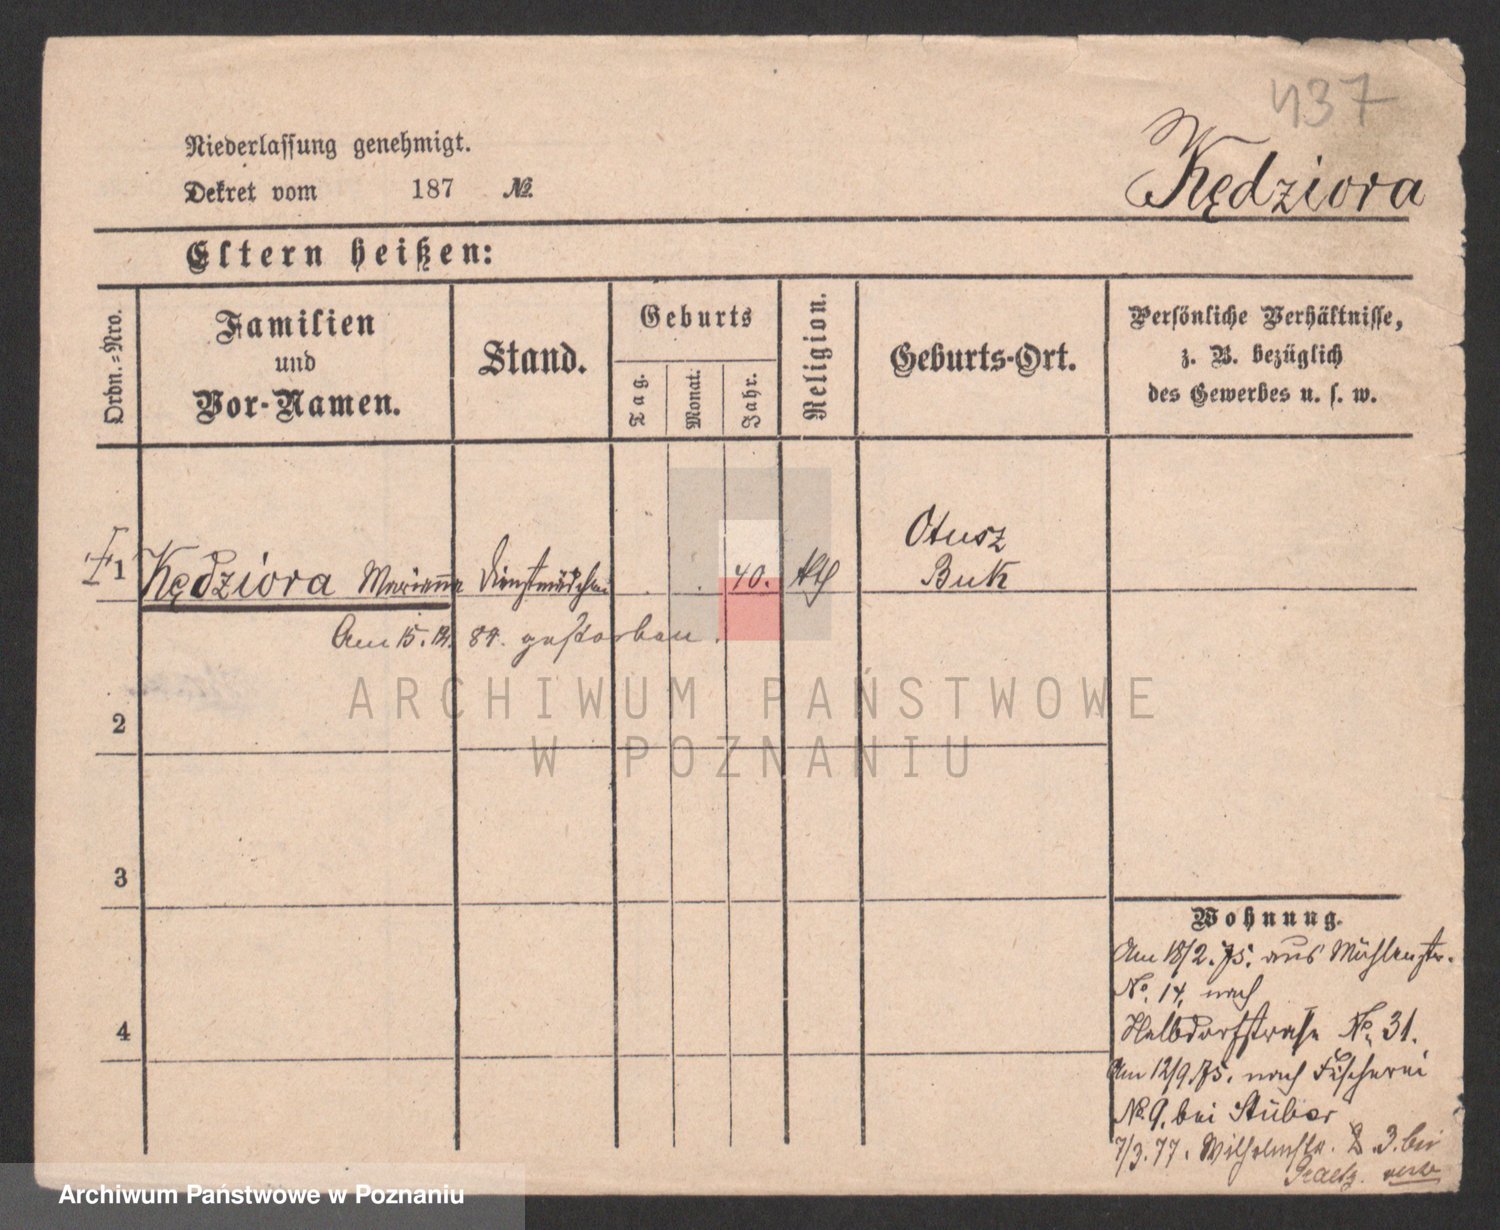 437
Niederlassung genehmigt.
Dekret vom 187 №
Kędziora
Eltern heißen:
Ordn.=Nro.
Familien
und
Vor-Namen.
Stand.
Geburts
Tag.
Monat.
Jahr.
Religion.
Geburts-Ort.
Persönliche Verhältnisse,
z. B. bezüglich
des Gewerbes u. s. w.
1 Kędziora Marianna Dienstmädchen 40. kth Otusz
Buk
Am 15. 12. 84. gestorben.
2
3
4
Wohnung.
Am 18/2. 75. aus Mühlenstr.
No. 14. nach
Halbdorfstraße No. 31.
Am 12/9. 75. nach Fischerei
No. 9. bei Stüber
7/3. 77. Wilhelmstr. 3. bei
ARCHIWUM PAŃSTWOWE
W POZNANIU
Archiwum Państwowe w Poznaniu